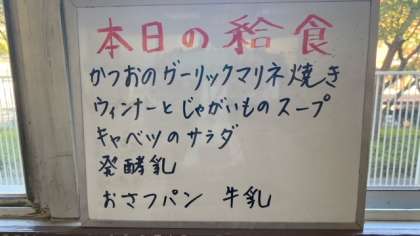 本日の給食
かつおのガーリックマリネ焼き
ウィンナーとじゃがいものスープ
キャベツのサラダ
発酵乳
おさつパン 牛乳